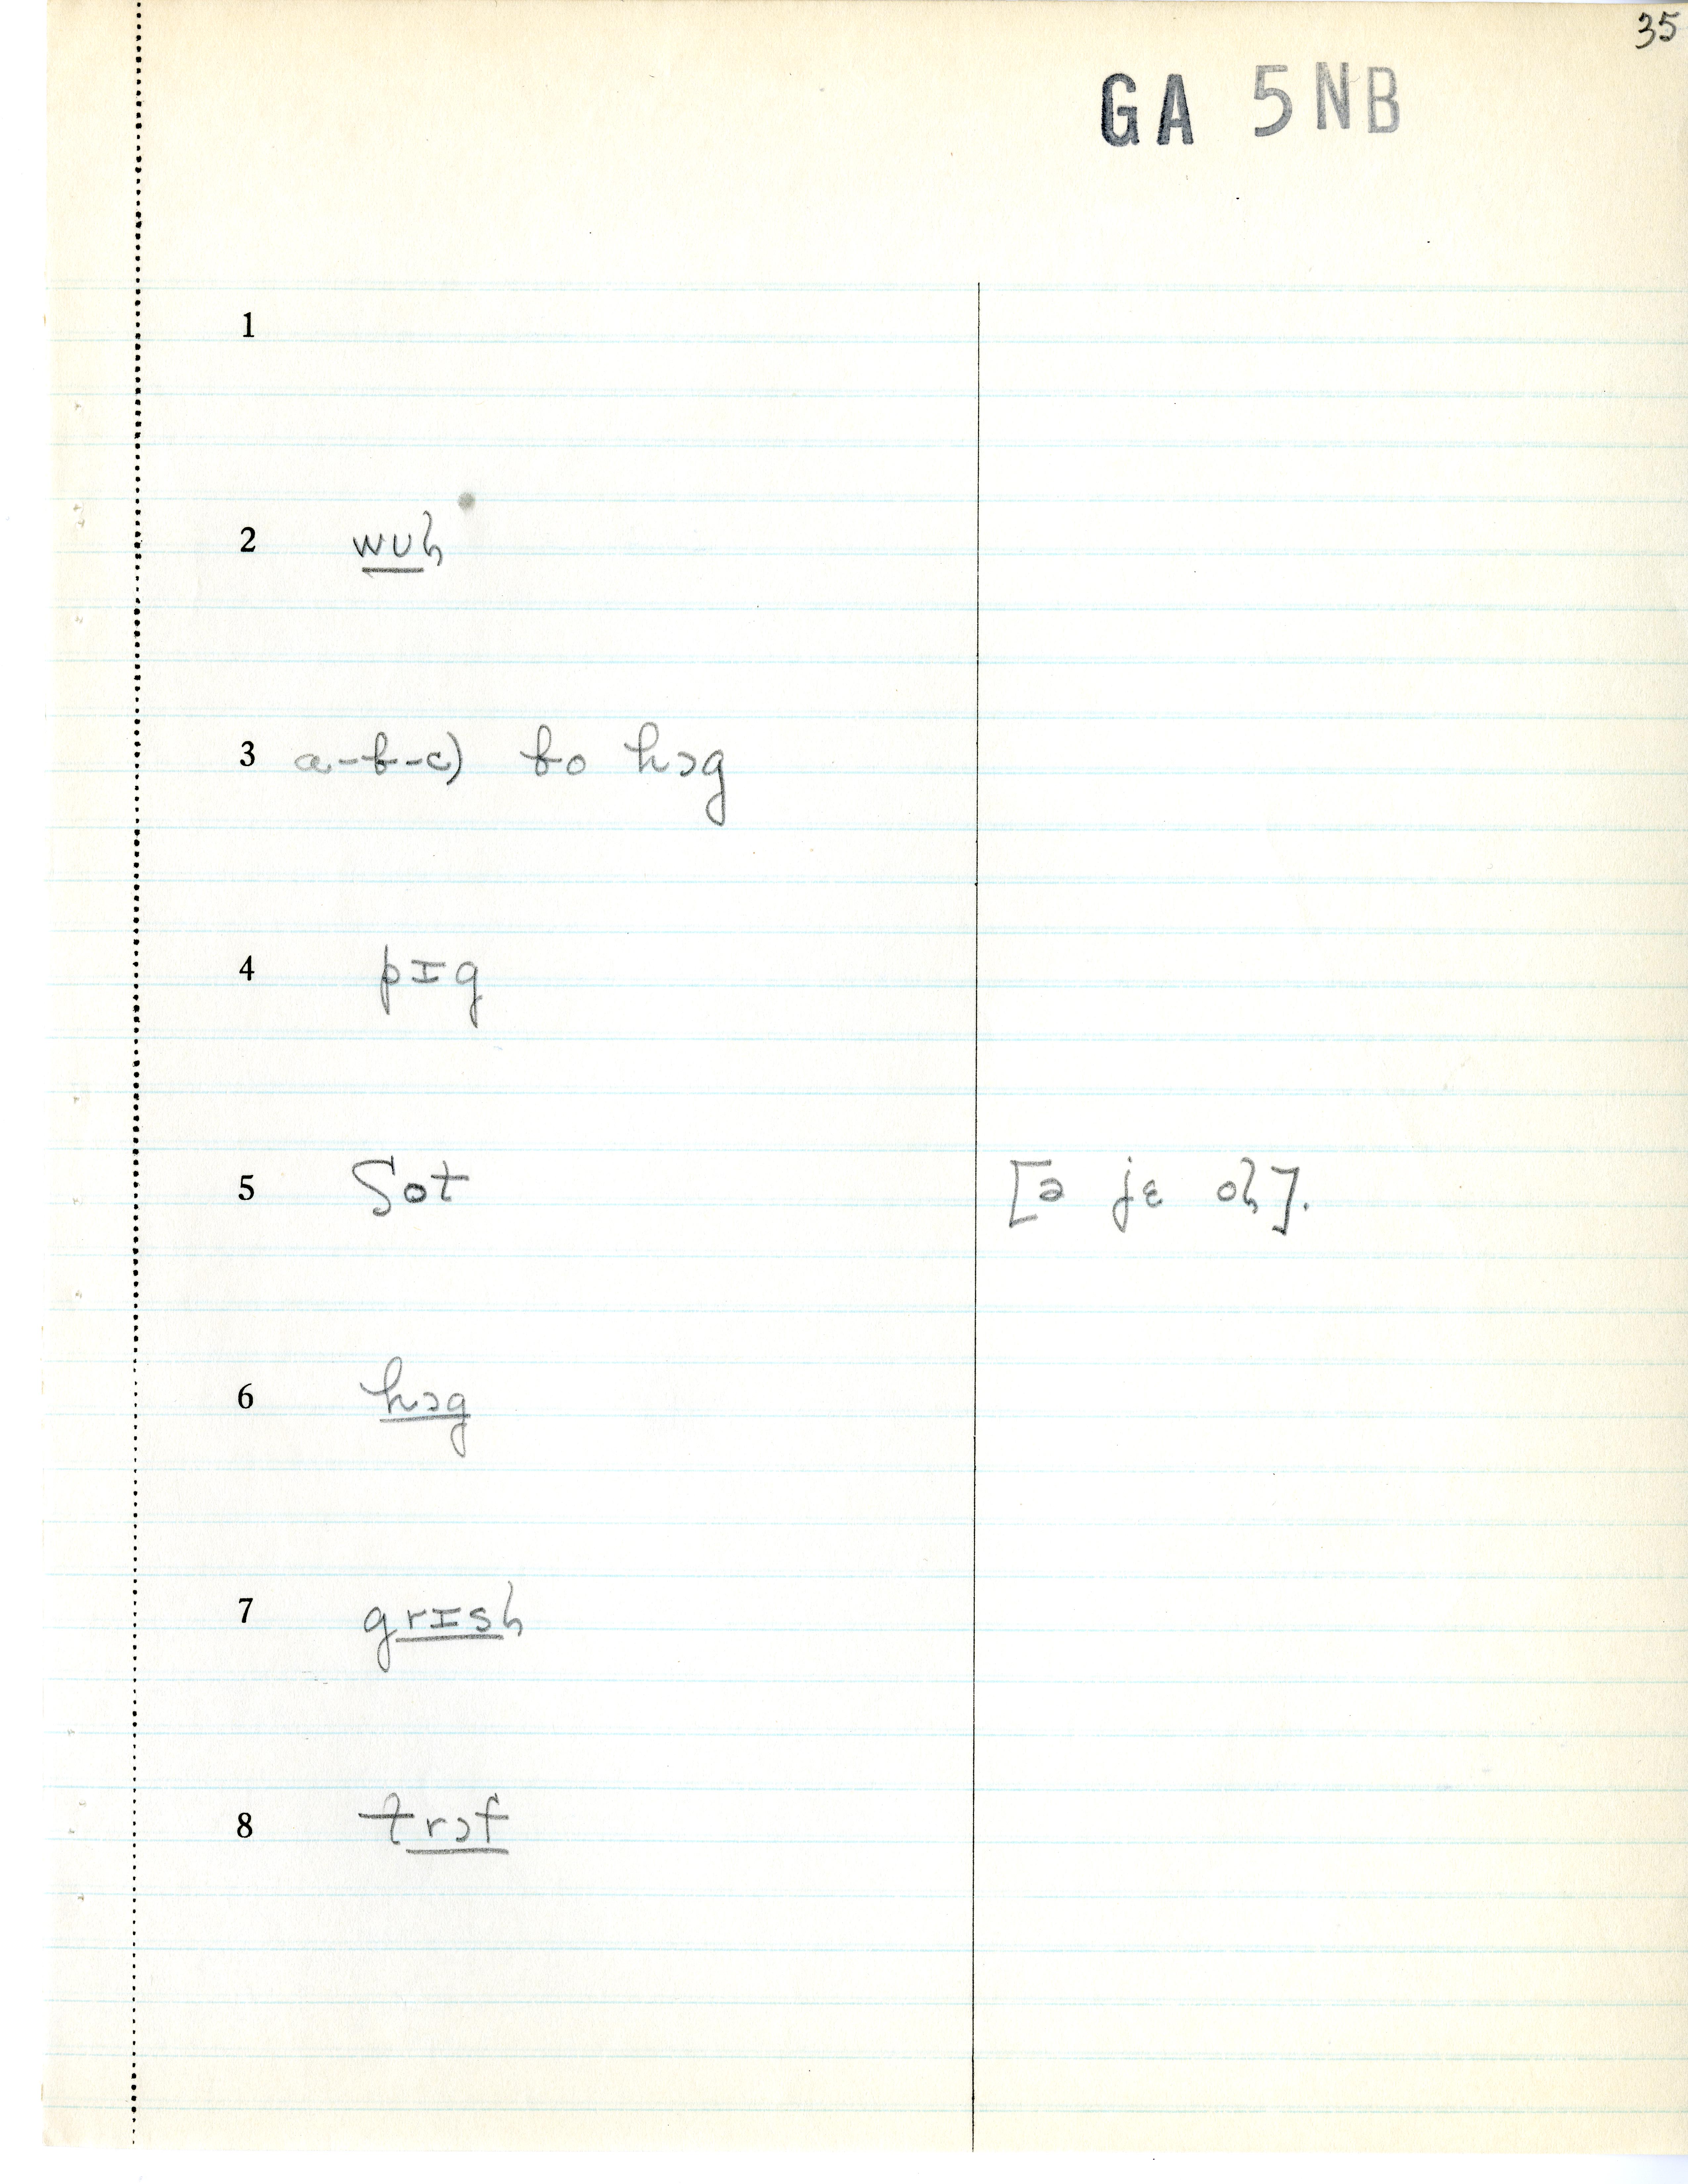 35
GA 5NB
1
2 wuɦ
3 a-b-c) bo hɔg
4 pɪg
5 ʃot [ə jɛ oɦ].
6 hɔg
7 grɪsɦ
8 trɔf